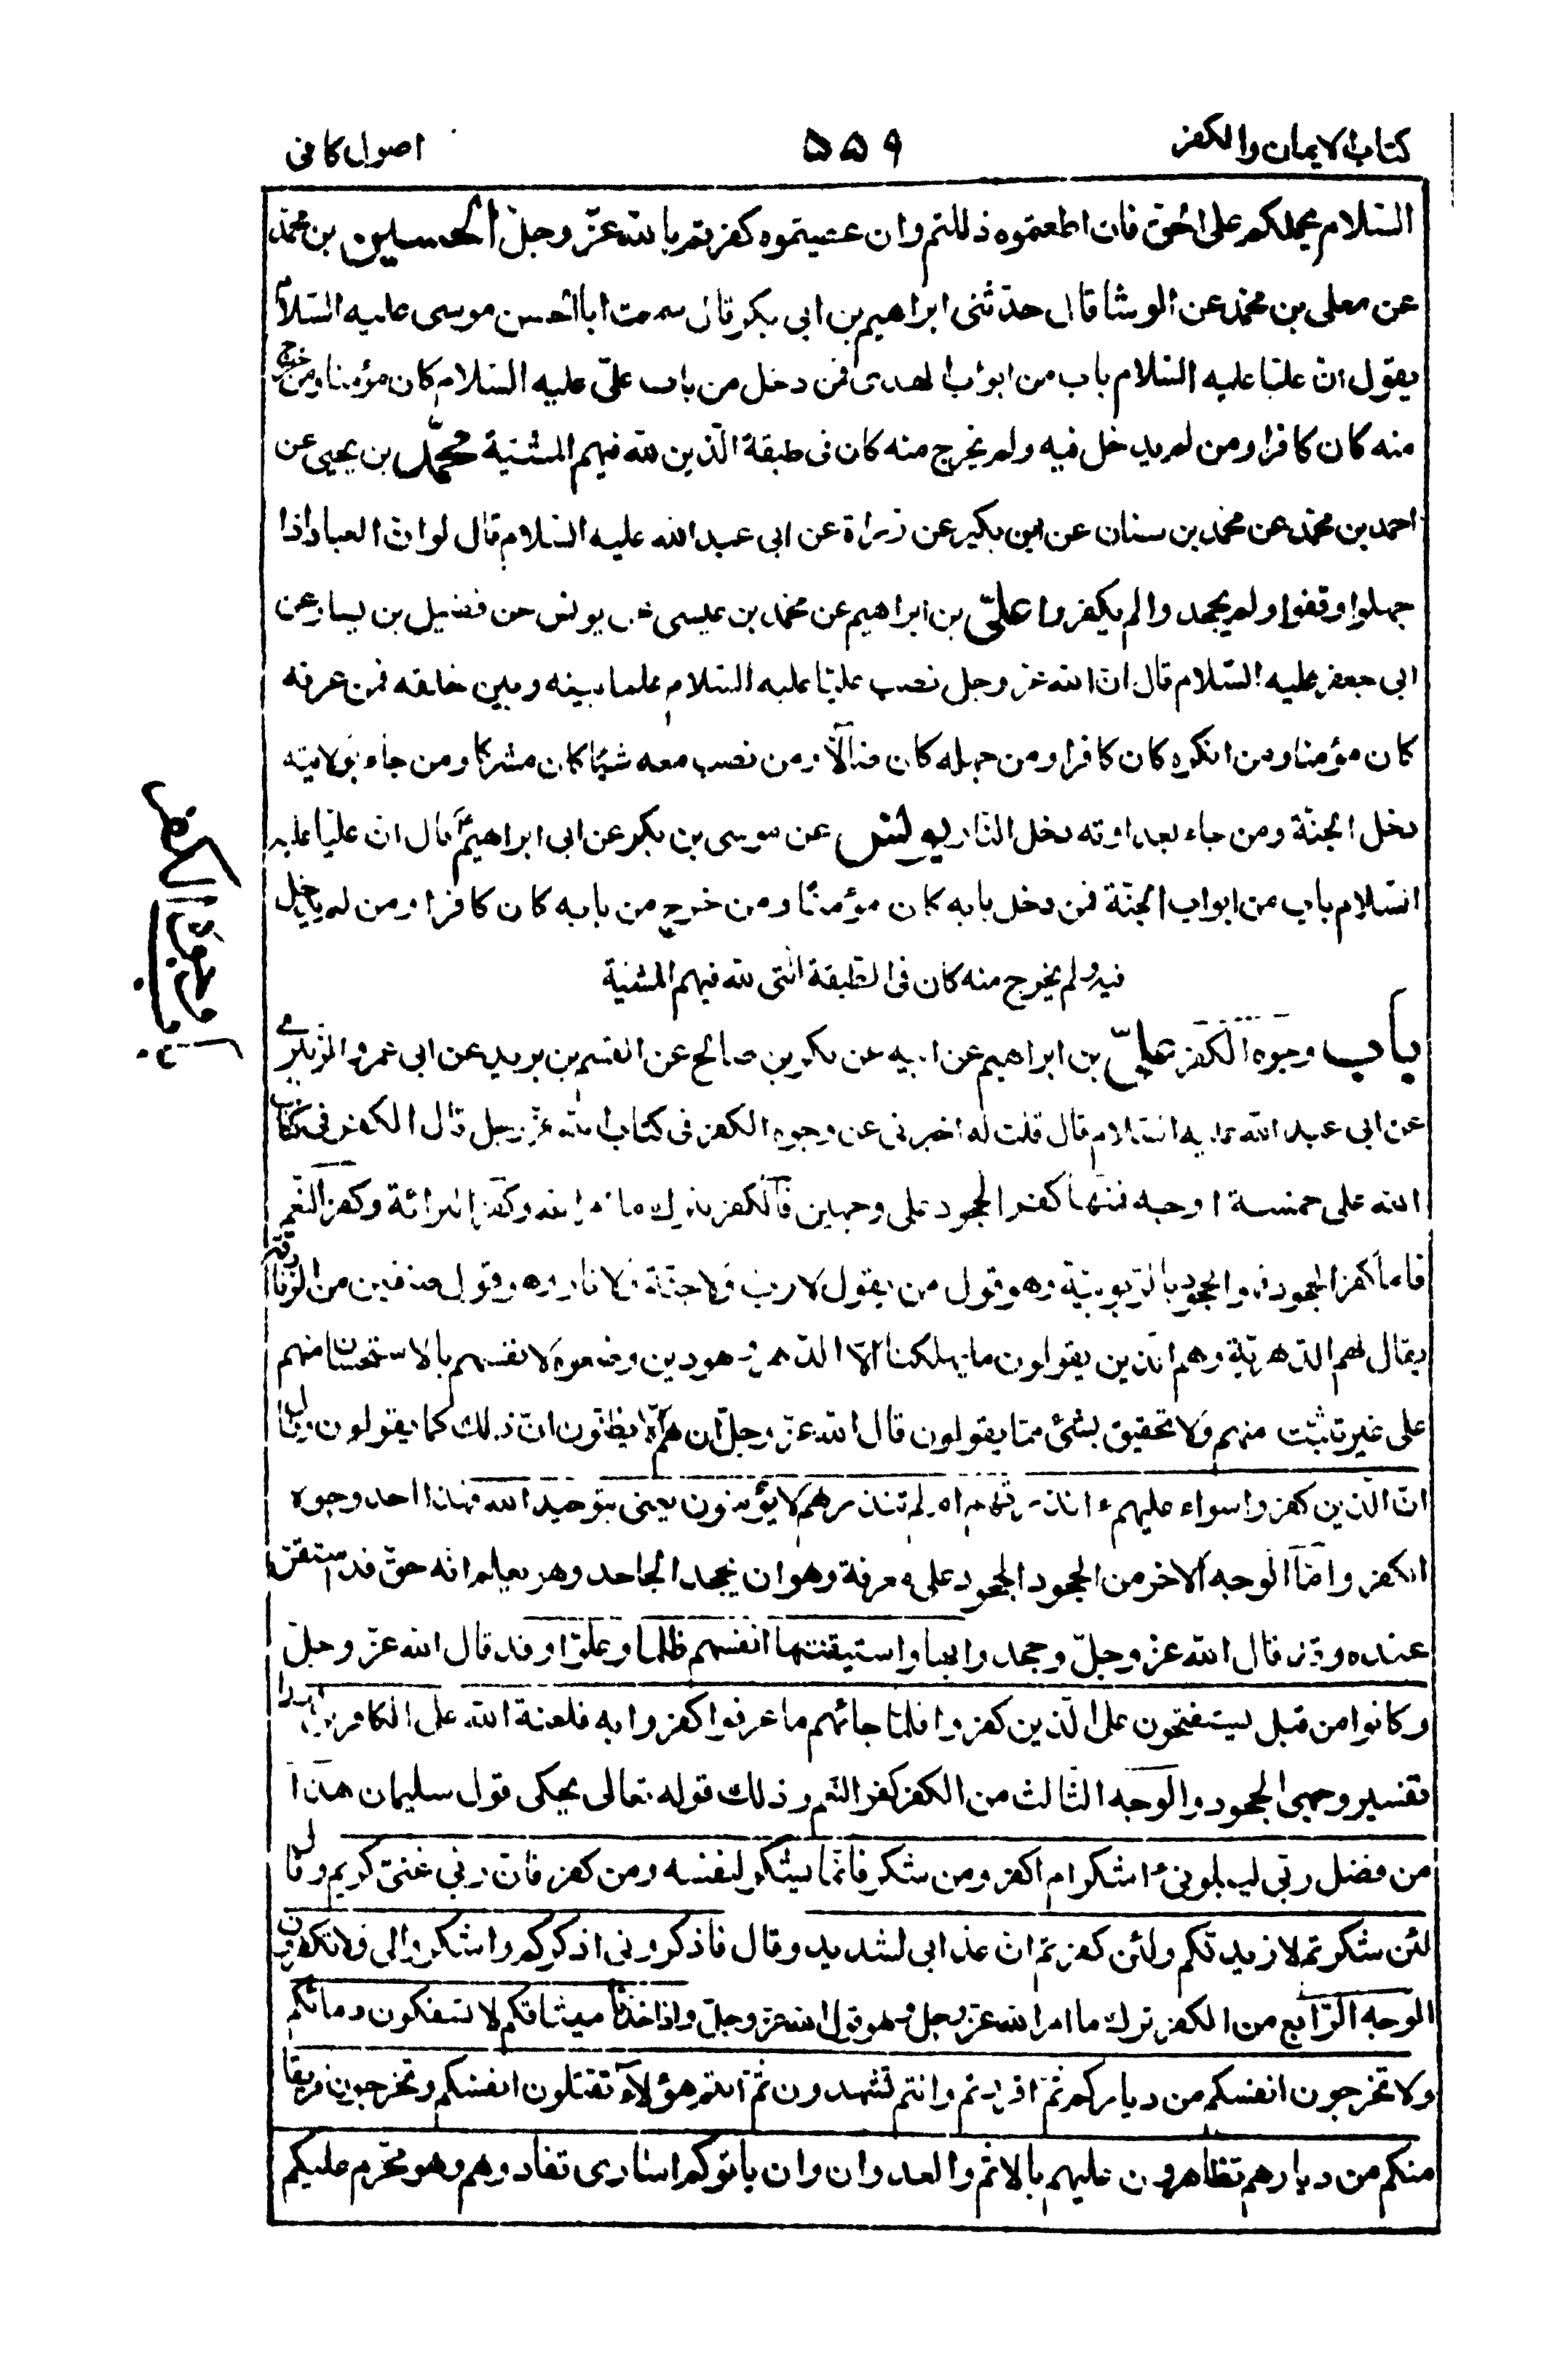 كتاب الايمان والكفر ۵۵۹ اصول كافى
السّلام يحملكم على الحق فان اطعتموه ذللتم وان عصيتموه كفرتم بالله عزّ وجلّ الحسين بن محمّد
عن معلى بن محمّد عن الوشا قال حدّثنى ابراهيم بن ابى بكر قال سمعت ابا الحسن موسى عليه السّلام
يقول انّ عليّا عليه السّلام باب من ابواب الهدى فمن دخل من باب علىّ عليه السّلام كان مؤمنا ومن خرج
منه كان كافرا ومن لم يدخل فيه ولم يخرج منه كان فى طبقة الّذين لله فيهم المشيّة محمّد بن يحيى عن
احمد بن محمّد عن محمّد بن سنان عن ابن بكير عن زرارة عن ابى عبد الله عليه السّلام قال لو انّ العباد اذا
جهلوا وقفوا ولم يجحدوا لم يكفروا علىّ بن ابراهيم عن محمّد بن عيسى عن يونس عن فضيل بن يسار عن
ابى جعفر عليه السّلام قال انّ الله عز وجل نصب عليّا عليه السّلام علما بينه وبين خلقه فمن عرفه
كان مؤمنا ومن انكره كان كافرا ومن جهله كان ضالّا ومن نصب معه شيئا كان مشركا ومن جاء بولايته
دخل الجنّة ومن جاء بعداوته دخل النّار يونس عن موسى بن بكر عن ابى ابراهيم قال انّ عليّا عليه
السّلام باب من ابواب الجنّة فمن دخل بابه كان مؤمنًا ومن خرج من بابه كان كافرا ومن لم يدخل
فيه ولم يخرج منه كان فى الطّبقة الّتى لله فيهم المشيّة
باب وجوه الكفر علىّ بن ابراهيم عن ابيه عن بكر بن صالح عن القسم بن بريد عن ابى عمرو الزّبيرى
عن ابى عبد الله عليه السّلام قال قلت له اخبرنى عن وجوه الكفر فى كتاب الله عزّ وجل قال الكفر فى كتاب
الله على خمسة اوجه فمنها كفر الجحود على وجهين فالكفر بترك ما امر الله وكفر البرائة وكفر النّعم
فامّا كفر الجحود فهو الجحود بالرّبوبيّة وهو قول من يقول لا ربّ ولا جنّة ولا نار وهو قول صنفين من الزّنادقة
يقال لهم الدّهريّة وهم الّذين يقولون ما يهلكنا الّا الدّهر وهو دين وضعوه لانفسهم بالاستحسان منهم
على غير تثبّت منهم ولا تحقيق بشئ ممّا يقولون قال الله عزّ وجلّ ان هم الّا يظنّون انّ ذلك كما يقولون وقال
انّ الّذين كفروا سواء عليهم ءانذرتهم ام لم تنذرهم لا يؤمنون يعنى بتوحيد الله فهذا احد وجوه
الكفر وامّا الوجه الاخر من الجحود الجحود على معرفة وهو ان يجحد الجاحد وهو يعلم انّه حقّ قد استقرّ
عنده وقد قال الله عزّ وجلّ وجحدوا بها واستيقنتها انفسهم ظلما وعلوّا وقد قال الله عزّ وجلّ
وكانوا من قبل يستفتحون على الّذين كفروا فلمّا جائهم ما عرفوا كفروا به فلعنة الله على الكافرين فهذا
تفسير وجهى الجحود والوجه الثّالث من الكفر كفر النّعم وذلك قوله تعالى يحكى قول سليمان هذا
من فضل ربّى ليبلونىء اشكرام اكفر ومن شكر فانّما يشكر لنفسه ومن كفر فانّ ربّى غنىّ كريم وقال
لئن شكرتم لازيدنّكم ولئن كفرتم انّ عذابى لشديد وقال فاذكرونى اذكركم واشكروا لى ولا تكفرون
الوجه الرّابع من الكفر ترك ما امر الله عزّ وجل به وهو قول الله عز وجلّ واذ اخذنا ميثاقكم لا تسفكون دمائكم
ولا تخرجون انفسكم من دياركم ثمّ اقررتم وانتم تشهدون ثمّ انتم هؤلاء تقتلون انفسكم وتخرجون فريقا
منكم من ديارهم تظاهرون عليهم بالاثم والعدوان وان ياتوكم اسارى تفادوهم وهو محرّم عليكم
باب وجوه الكفر